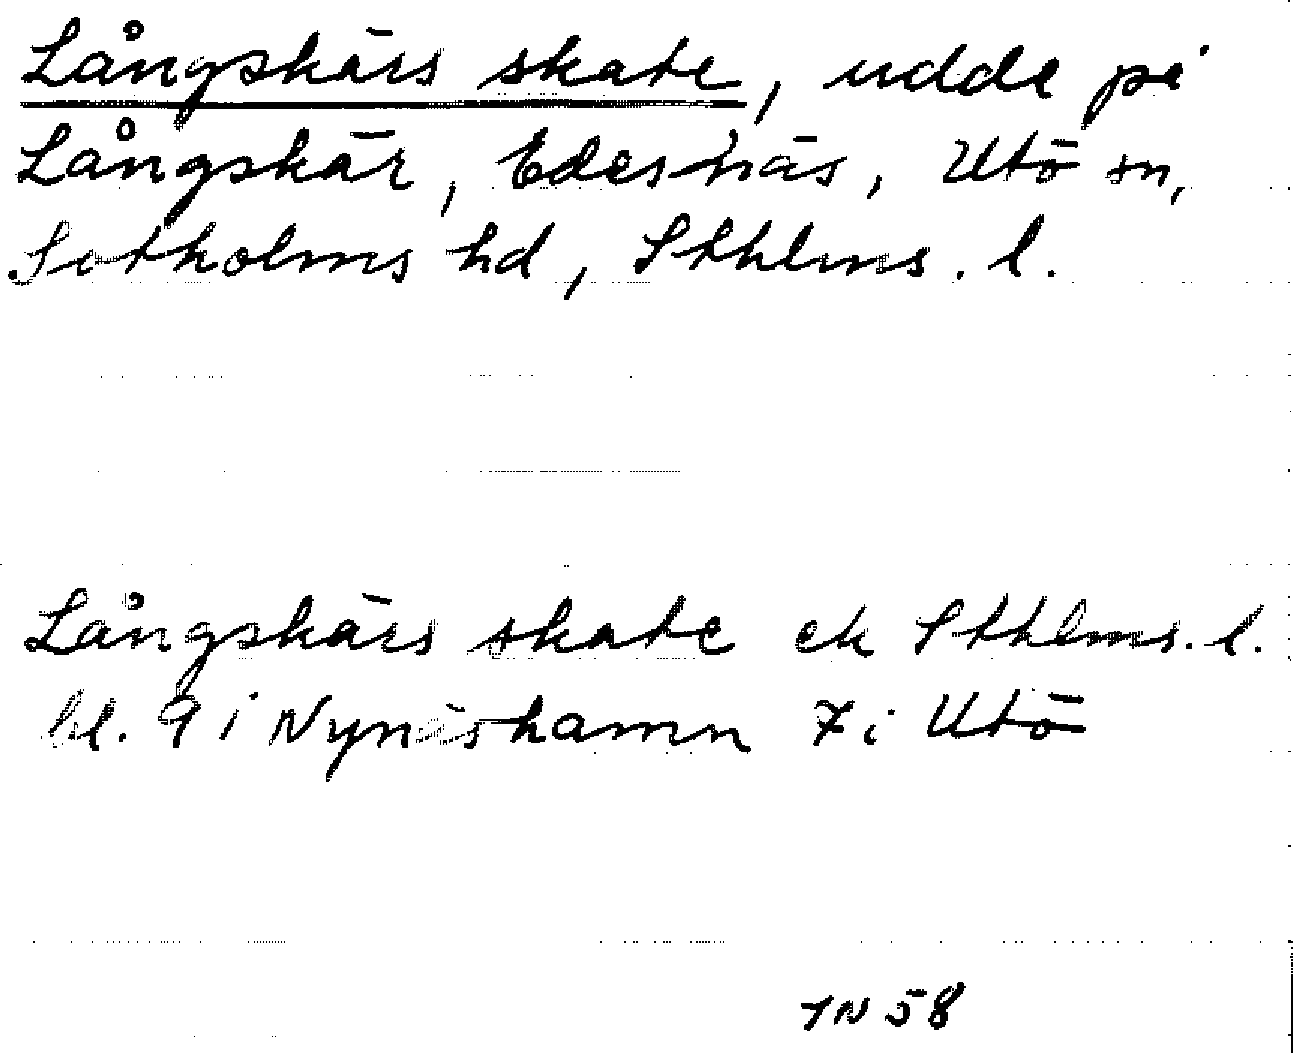 Långskärs skate, udde på
Långskär, Edesnäs, Utö sn,
Sotholms hd, Sthlms. l.
Långskärs skate ek Sthlms. l.
bl. 9 i Nynäshamn 7 i Utö
IN 58